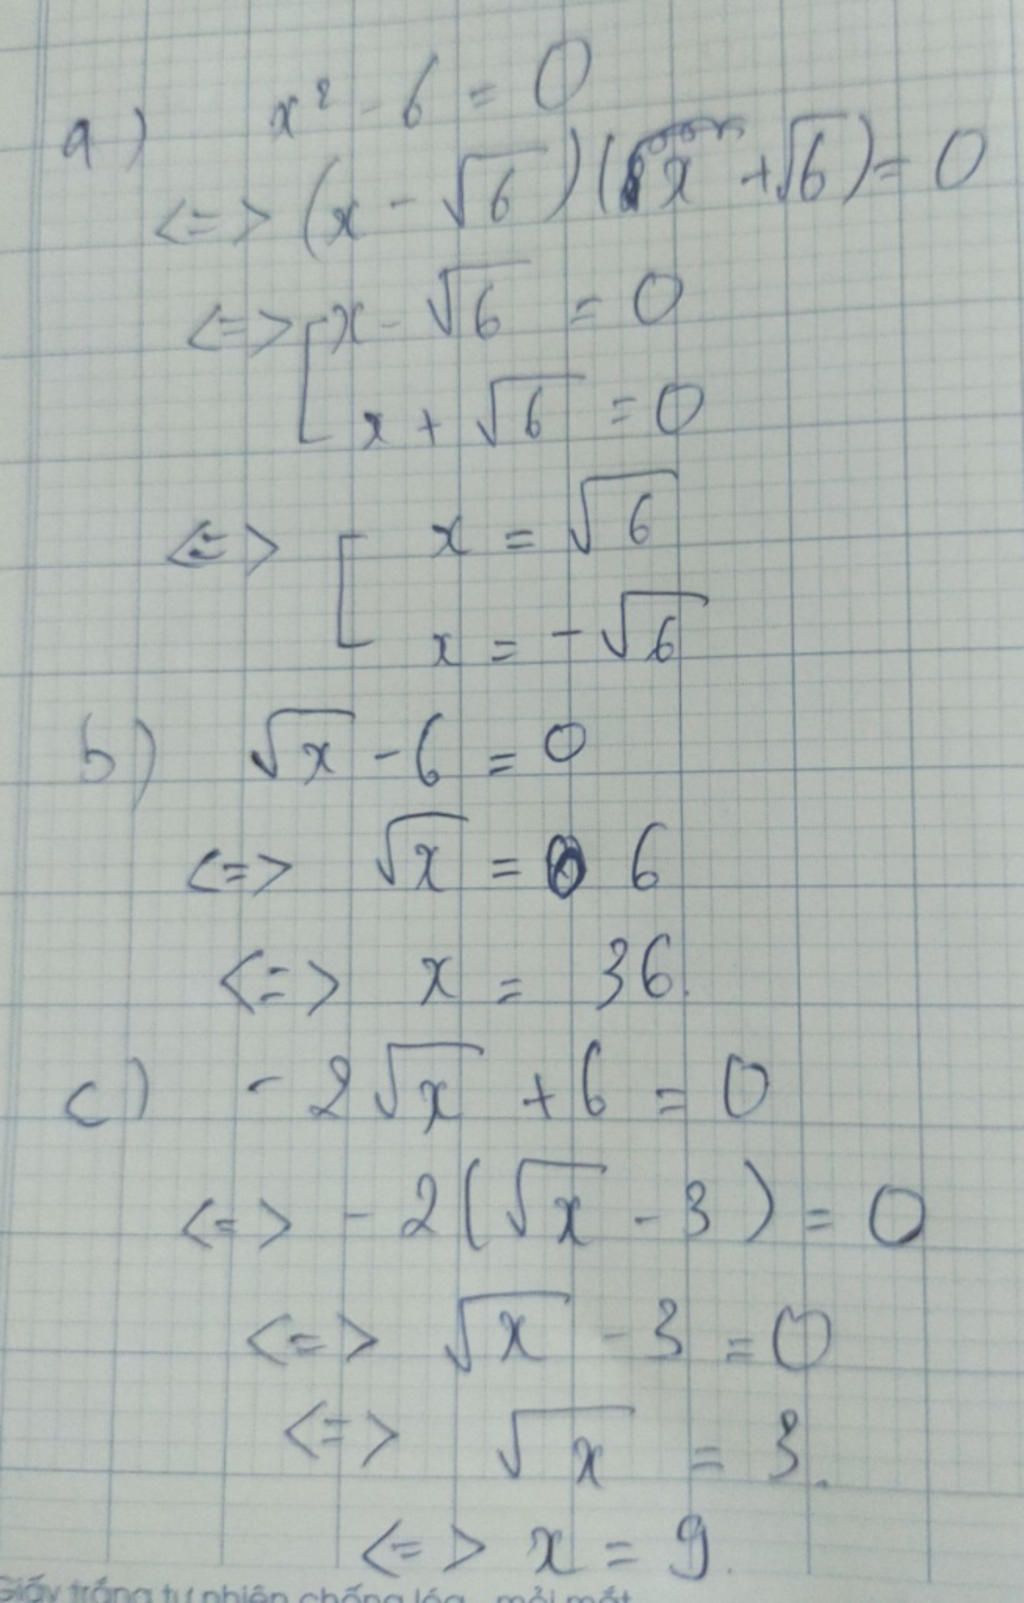 a) x² - 6 = 0
<=> (x - √6)(x + √6) = 0
<=> [ x - √6 = 0
x + √6 = 0
<=> [ x = √6
x = -√6
b) √x - 6 = 0
<=> √x = 6
<=> x = 36.
c) -2√x + 6 = 0
<=> -2(√x - 3) = 0
<=> √x - 3 = 0
<=> √x = 3.
<=> x = 9.
Giấy trắng tự nhiên chống lóa, mỏi mắt